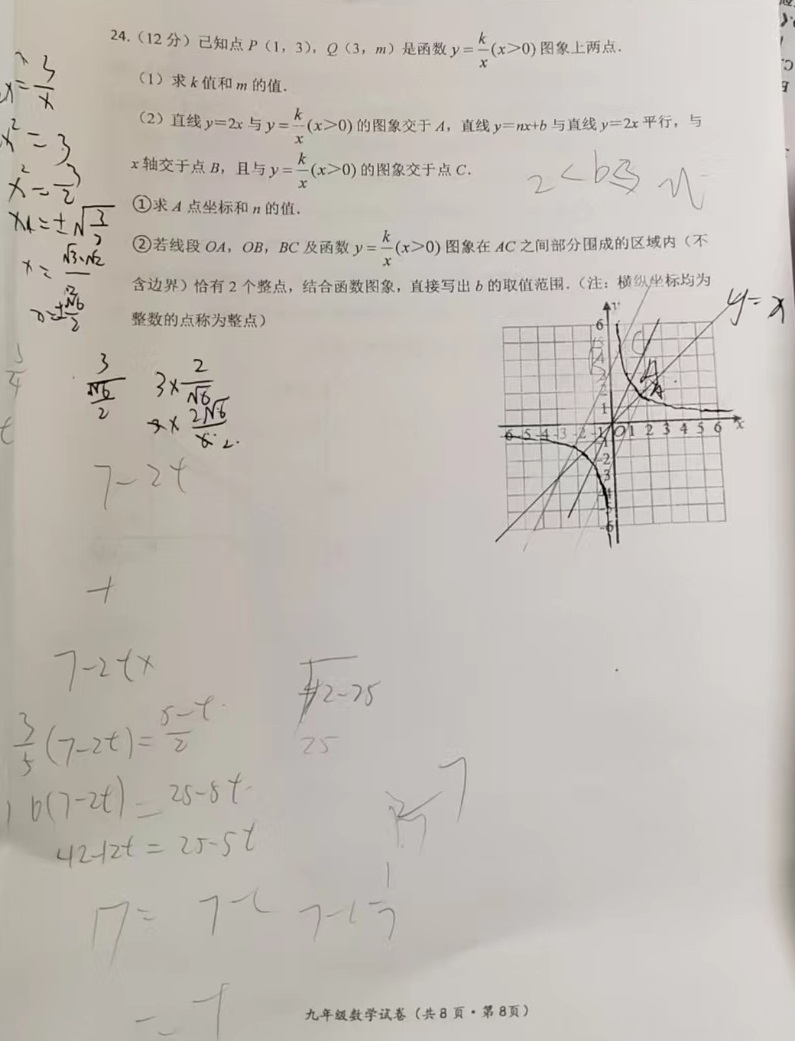 24.（12分）已知点P（1，3），Q（3，m）是函数y=k/x(x>0)图象上两点.
（1）求k值和m的值.
（2）直线y=2x与y=k/x(x>0)的图象交于A，直线y=nx+b与直线y=2x平行，与
x轴交于点B，且与y=k/x(x>0)的图象交于点C.
①求A点坐标和n的值.
②若线段OA，OB，BC及函数y=k/x(x>0)图象在AC之间部分围成的区域内（不
含边界）恰有2个整点，结合函数图象，直接写出b的取值范围.（注：横纵坐标均为
整数的点称为整点）
x=3/x
x²=3
x²=3/2
x=
3×2/√6
y=x
6
1
-6 -5 -4 -3 -2 -1 O 1 2 3 4 5 6 x
-2
-3
-6
7-2t
7-2tx
3/5(7-2t)=5-t/2
6(7-2t)=25-5t
42-12t=25-5t
42-25
25
17=
九年级数学试卷（共8页·第8页）